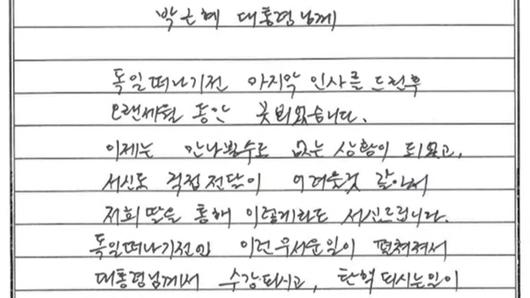 박근혜 대통령님께
독일떠나기전 마지막 인사를 드린후
오랜세월 동안 못뵈었습니다.
이제는 만나뵐수도 없는 상황이 되었고,
서신도 직접전달이 어려울것 같아서
저희딸을 통해 이렇게라도 서신드립니다.
독일떠나기전에 이런 무서운일이 펼쳐져서
대통령님께서 수감되시고, 탄핵되시는일이